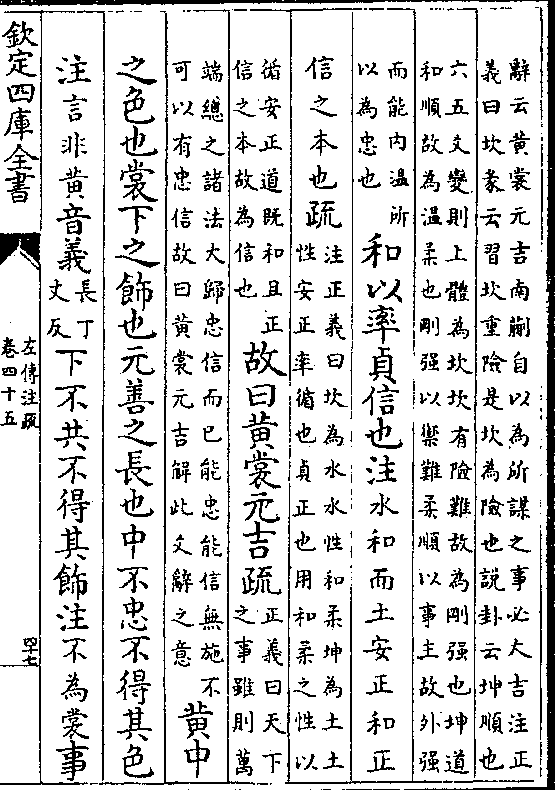 辭云黃裳元吉南蒯自以為所謀之事必大吉注正
義曰坎彖云習坎重險是坎為險也說卦云坤順也
六五爻變則上體為坎坎有險難故為剛强也坤道
和順故為溫柔也剛强以禦難柔順以事主故外强
而能内温所
以為忠也
和以率貞信也注水和而土安正和正
信之本也疏
注正義曰坎為水水性和柔坤為土土
性安正率循也貞正也用和柔之性以
循安正道既和且正
信之本故為信也
故曰黃裳元吉疏
正義曰天下
之事雖則萬
端總之諸法大歸忠信而已能忠能信無施不
可以有忠信故曰黃裳元吉解此文辭之意
黃中
之色也裳下之飾也元善之長也中不忠不得其色
注言非黃音義
長丁
丈反
下不共不得其飾注不為裳事
欽定四庫全書
左傳注疏
卷四十五
四十七